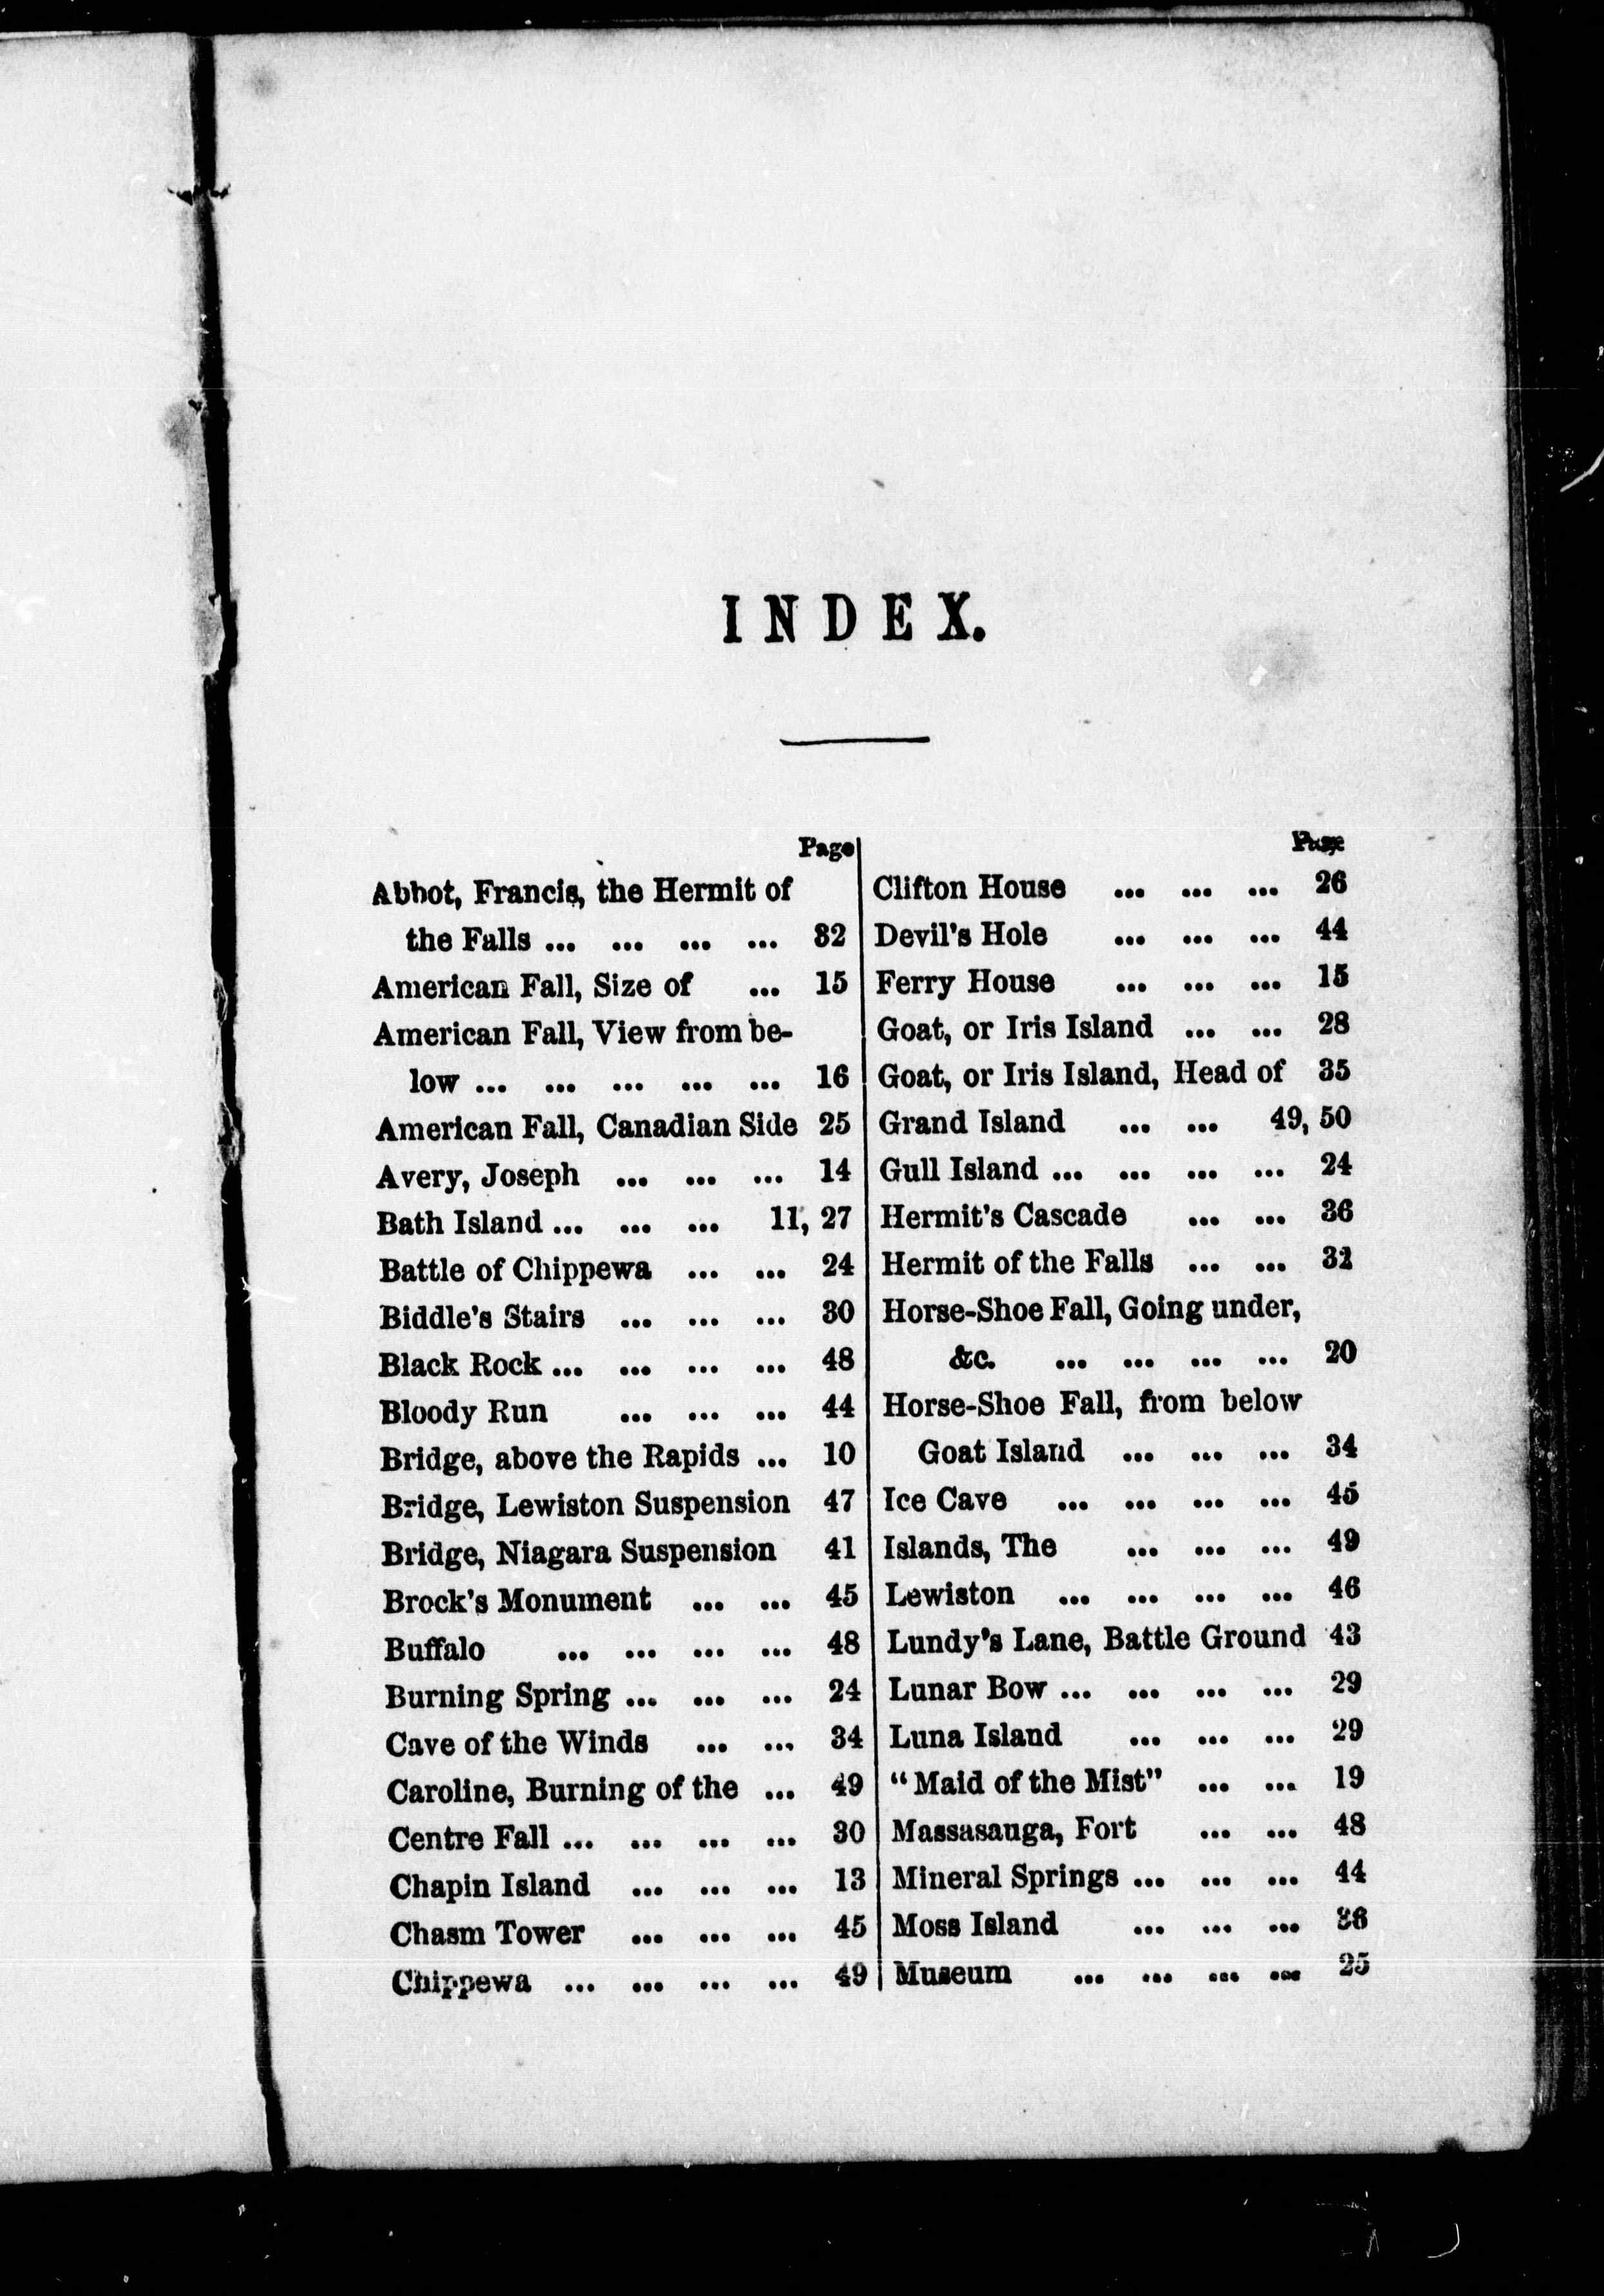 INDEX.
Page
Abbot, Francis, the Hermit of
the Falls ... ... ... ... 32
American Fall, Size of ... 15
American Fall, View from be-
low ... ... ... ... ... 16
American Fall, Canadian Side 25
Avery, Joseph ... ... ... 14
Bath Island ... ... ... 11, 27
Battle of Chippewa ... ... 24
Biddle's Stairs ... ... ... 30
Black Rock ... ... ... ... 48
Bloody Run ... ... ... 44
Bridge, above the Rapids ... 10
Bridge, Lewiston Suspension 47
Bridge, Niagara Suspension 41
Brock's Monument ... ... 45
Buffalo ... ... ... ... 48
Burning Spring ... ... ... 24
Cave of the Winds ... ... 34
Caroline, Burning of the ... 49
Centre Fall ... ... ... ... 30
Chapin Island ... ... ... 13
Chasm Tower ... ... ... 45
Chippewa ... ... ... ... 49
Page
Clifton House ... ... ... 26
Devil's Hole ... ... ... 44
Ferry House ... ... ... 15
Goat, or Iris Island ... ... 28
Goat, or Iris Island, Head of 35
Grand Island ... ... 49, 50
Gull Island ... ... ... ... 24
Hermit's Cascade ... ... 36
Hermit of the Falls ... ... 32
Horse-Shoe Fall, Going under,
&c. ... ... ... ... 20
Horse-Shoe Fall, from below
Goat Island ... ... ... 34
Ice Cave ... ... ... ... 45
Islands, The ... ... ... 49
Lewiston ... ... ... ... 46
Lundy's Lane, Battle Ground 43
Lunar Bow ... ... ... ... 29
Luna Island ... ... ... 29
"Maid of the Mist" ... ... 19
Massasauga, Fort ... ... 48
Mineral Springs ... ... ... 44
Moss Island ... ... ... 36
Museum ... ... ... ... 25